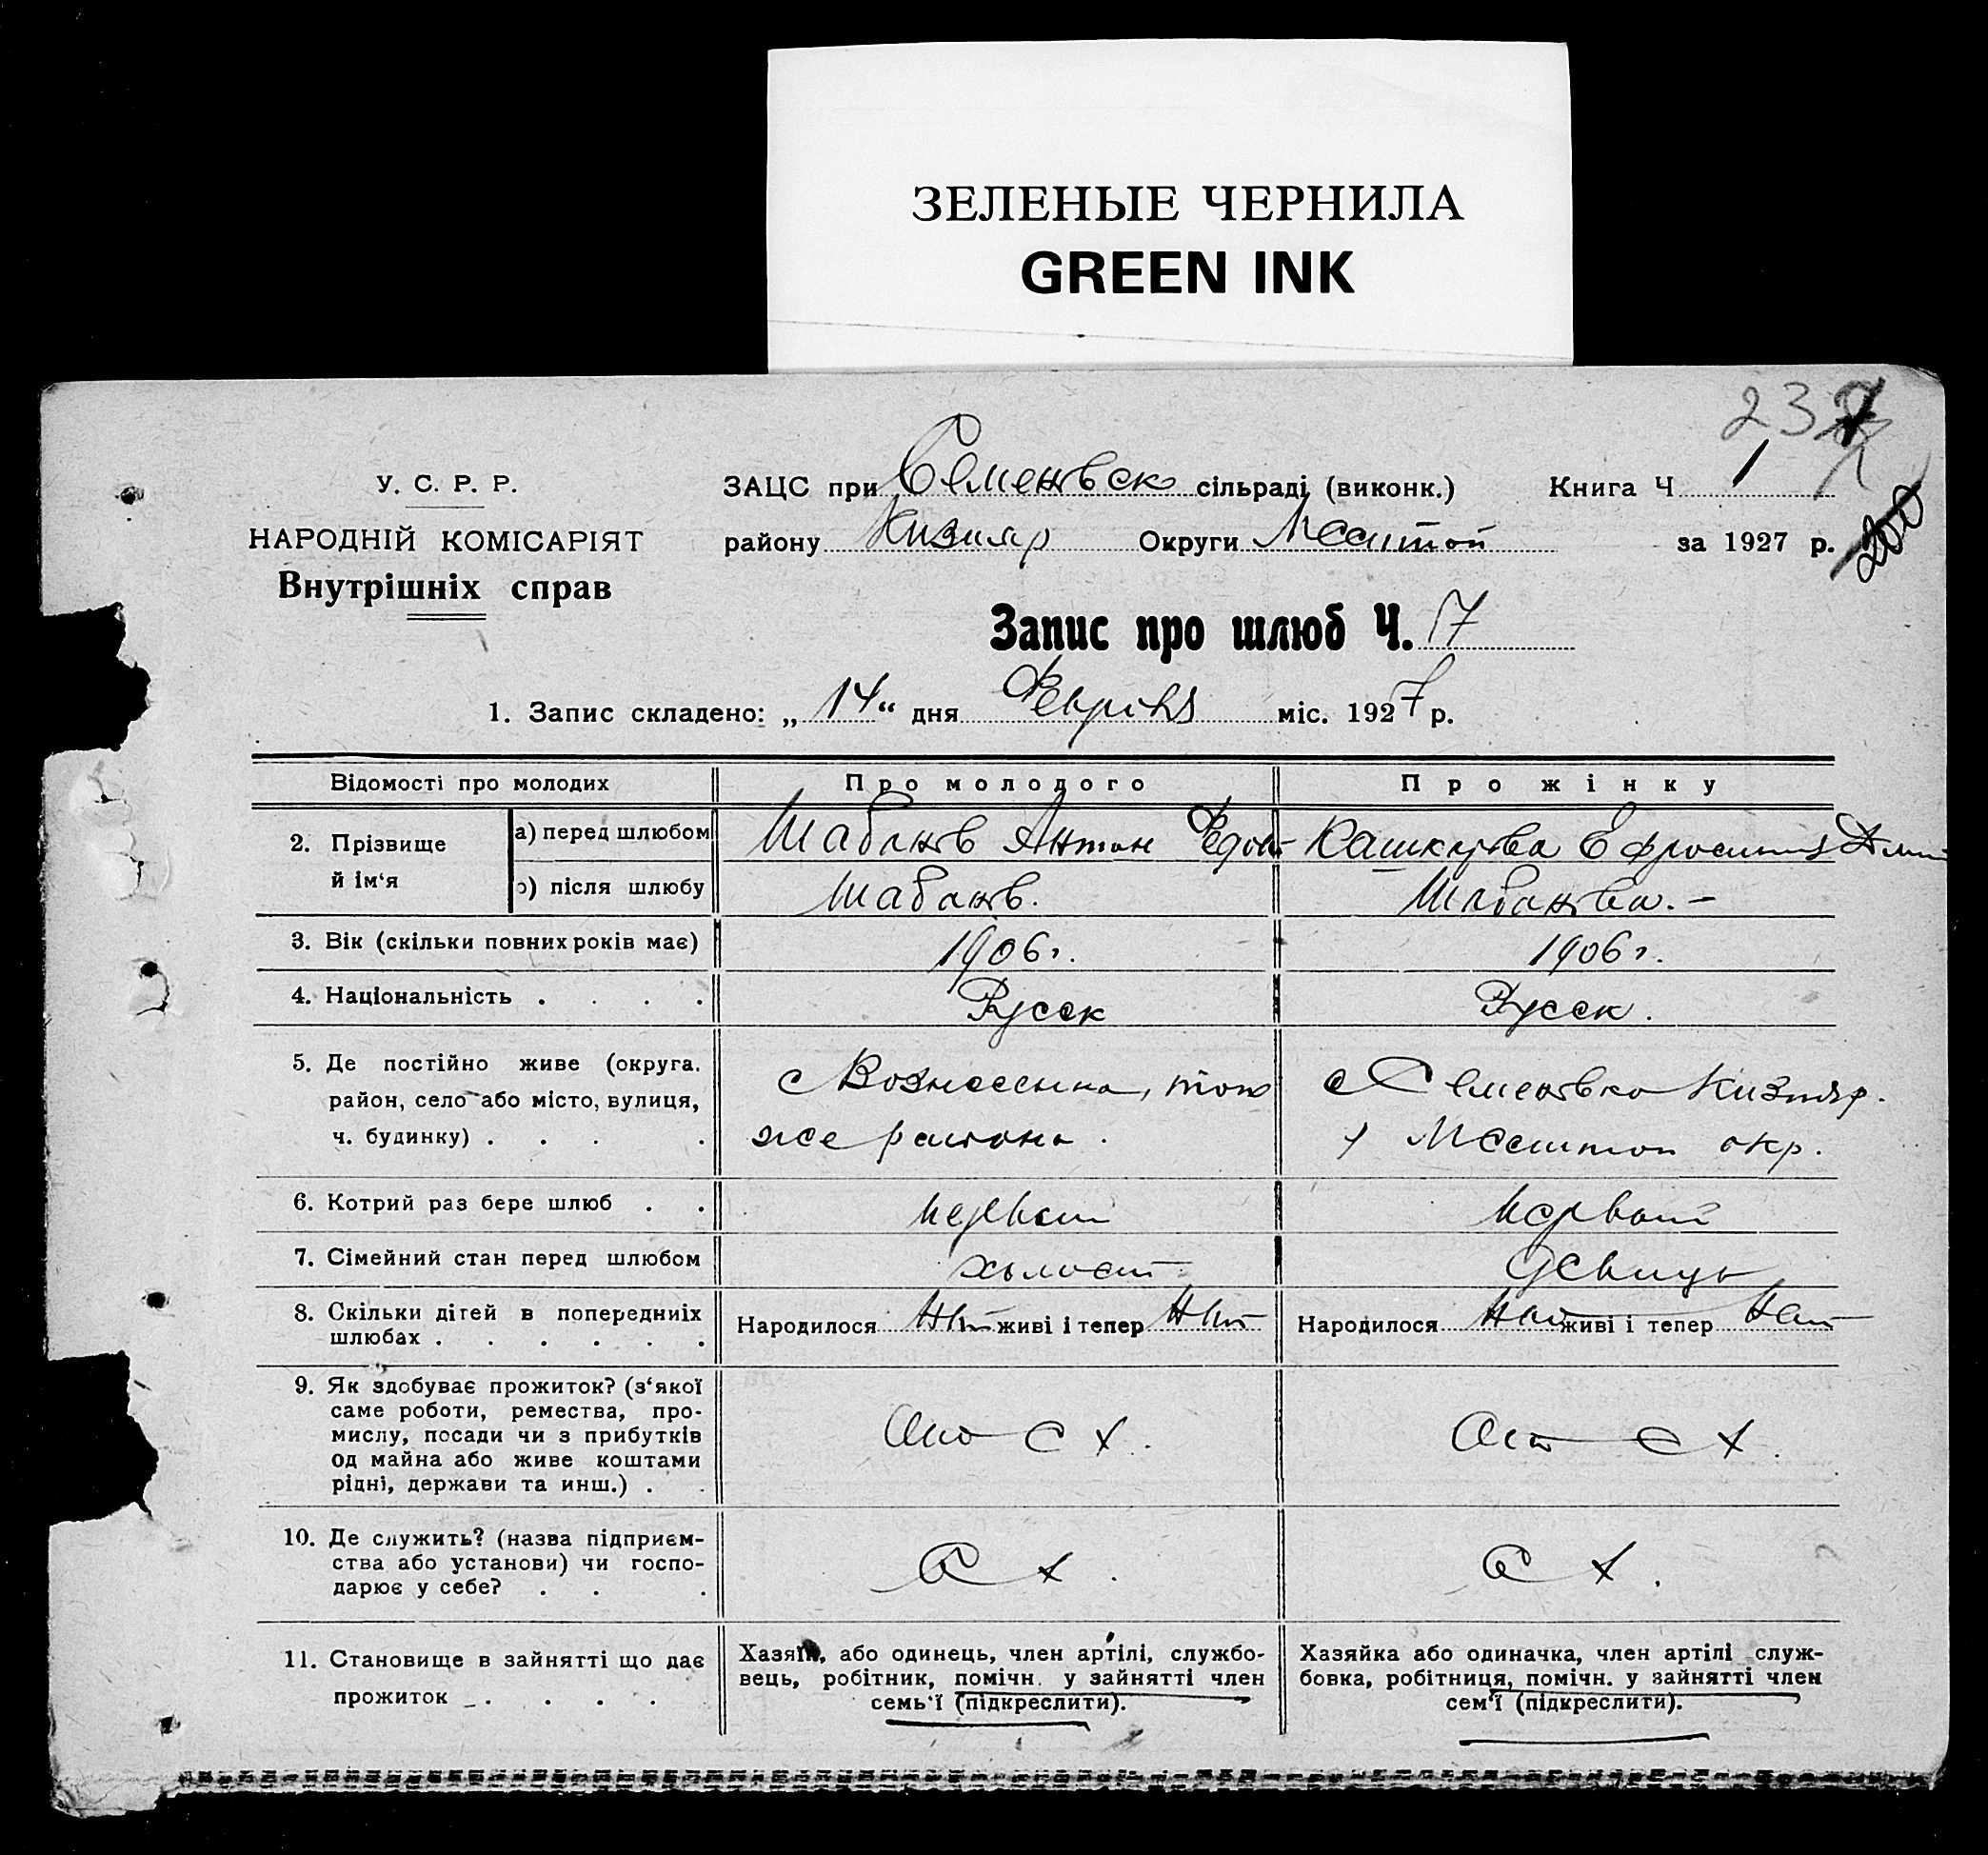 ЗЕЛЕНЫЕ ЧЕРНИЛА
GREEN INK
23
У. С. Р. Р.
НАРОДНІЙ КОМІСАРІЯТ
Внутрішніх справ
ЗАЦС при Семеновск сільраді (виконк.) Книга Ч 1
району Кизияр Округи Мелитоп за 1927 р.
Запис про шлюб Ч. 7
1. Запис складено: „ 14 “ дня Февраля міс. 1927 р.
Відомості про молодих Про молодого Про жінку
2. Прізвище й ім‘я а) перед шлюбом Шабанов Антон Федот Кашкарова Ефросиния Дмит
б) після шлюбу Шабанов. Шабанова. –
3. Вік (скільки повних років має) 1906 г. 1906 г.
4. Національність . . . . Русск Русск.
5. Де постійно живе (округа. район, село або місто, вулиця, ч. будинку) . . . .
с Вознесенка, того
же района.
с Семеновка Кизияр.
р Мелитоп окр.
6. Котрий раз бере шлюб . . первый первый
7. Сімейний стан перед шлюбом холост девица
8. Скільки дітей в попередниіх шлюбах . . . . . . Народилося Нет живі і тепер Нет Народилося Нет живі і тепер Нет
9. Як здобуває прожиток? (з‘якої
саме роботи, ремества, про-
мислу, посади чи з прибутків
од майна або живе коштами
рідні, держави та инш.) . .
от с х. от с х.
10. Де служить? (назва підприєм-
ства або установи) чи госпо-
дарює у себе? . . .
с х. с х.
11. Становище в зайнятті що дає
прожиток . . . .
Хазяїн, або одинець, член артілі, службо-
вець, робітник, помічн. у зайнятті член
семь‘ї (підкреслити).
Хазяйка або одиначка, член артілі служ-
бовка, робітниця, помічн. у зайнятті член
сем‘ї (підкреслити).